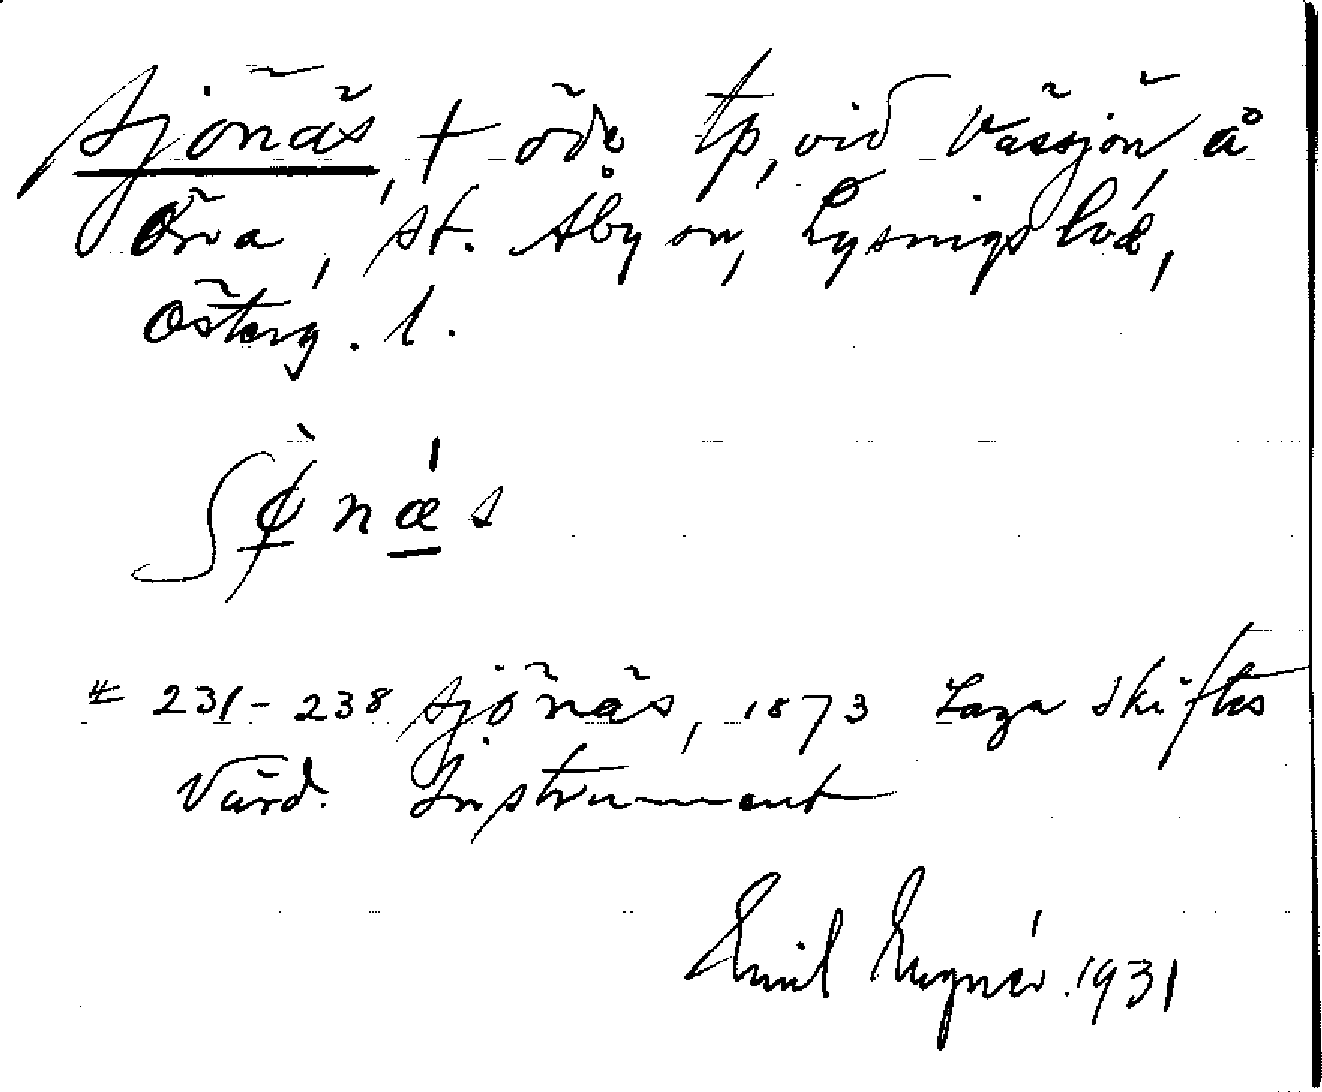 Sjönäs, + öde tp, vid Västjön, å
Öna, St. Åby sn, Lysings hd,
Österg. l.
ʃø̀næ̲s
# 231-238 Sjönäs, 1873 Laga Skiftes
Värd. Instrument
Emil Engnér. 1931